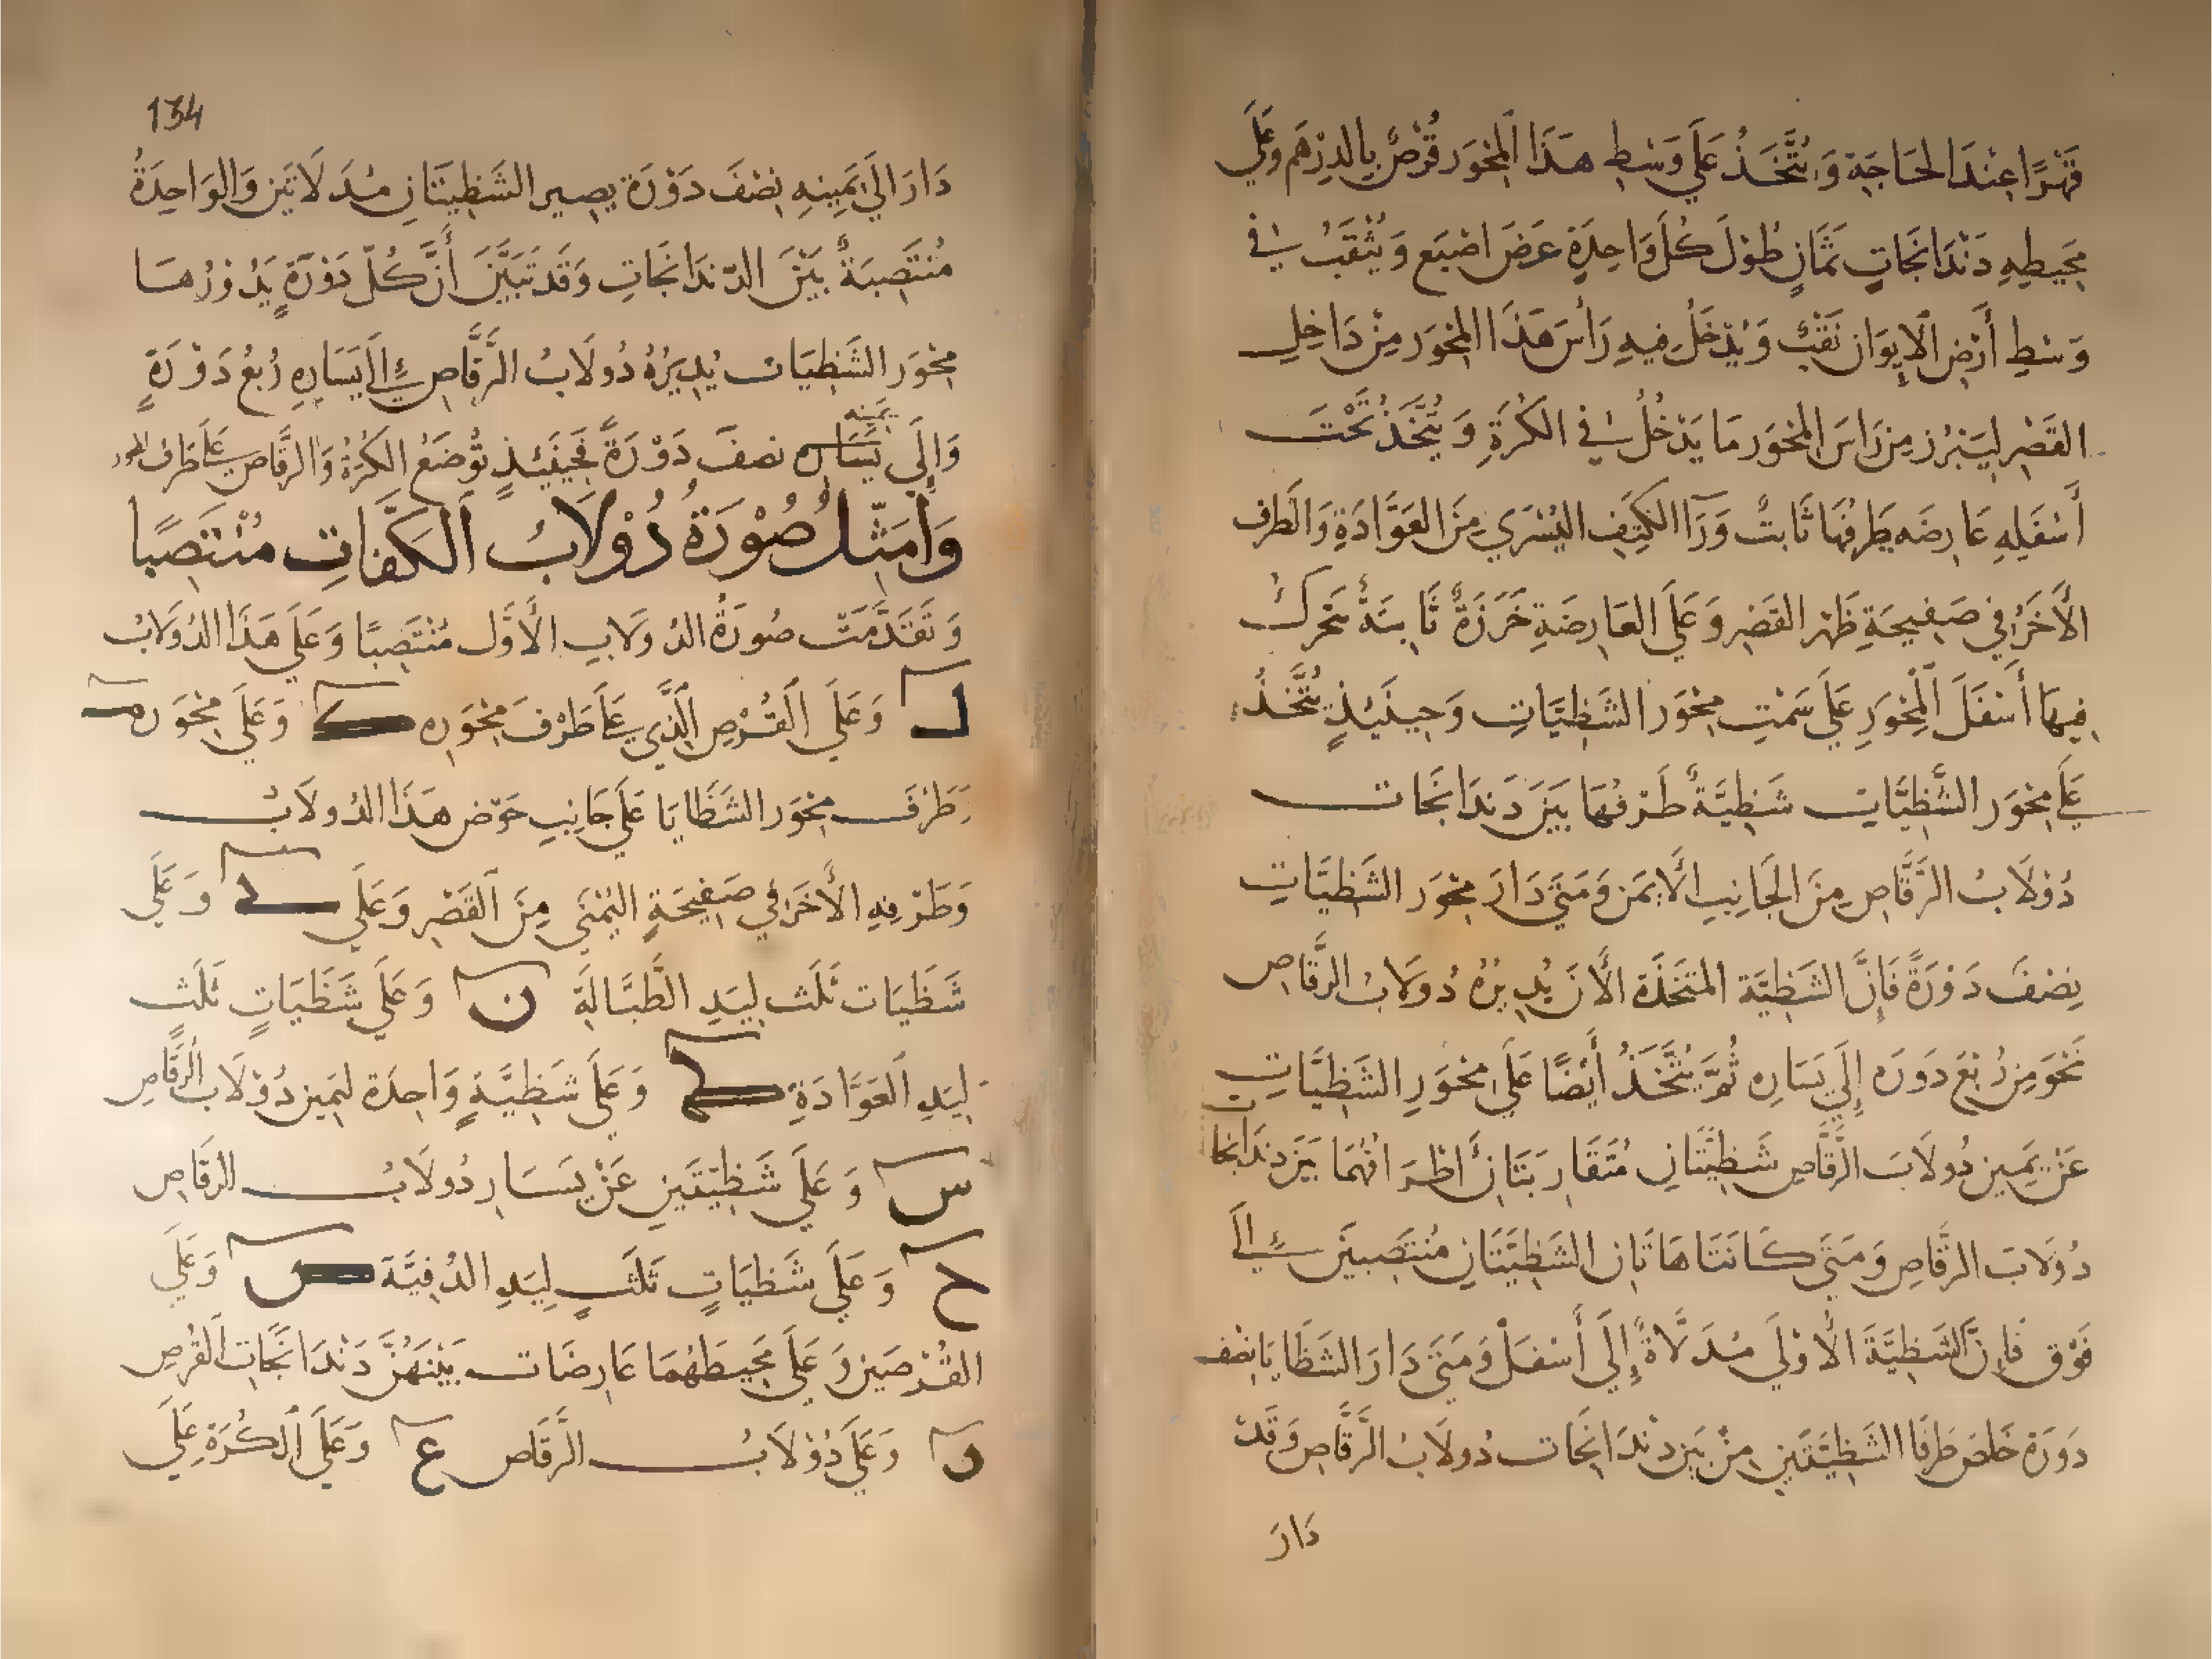 قَهْرًا عِنْدَ الحَاجَةِ وَيُتَّخَذُ عَلَى وَسْطِ هَذَا المِحْوَر قُرْصٌ بِالدِرْهَم وَعَلَى
مُحِيطِهِ دَنْدَانَجَاتٍ ثَمَانٍ طُوْلَ كُلّ وَاحِدَةٍ عَرضَ اصْبَع وَيُثْقَبُ في
وَسْطِ أَرْضِ الإيوَان نَقْبٌ وَيُدْخَلُ فِيهِ رَأسَ هَذَا المِحْوَر مِنْ دَاخِلِ
القَصْرِ ليَبْرُز مِن رَاسَ المِحْوَر مَا يَدْخُلُ في الكُرَةِ وَيُتَّخَذُ تَحْتَ
أَسْفَلِهِ عَارِضَه طَرفُهَا ثَابتٌ وَرَآ الكَتِفِ اليُسْرَي مِنَ العَوَّادَةِ وَالطَرف
الأَخَرُ في صَفِيحَةِ ظَهْر القَصْرِ وَعَلَى العَارِضَةِ خَرَزَةٌ ثَابتَةٌ تحَركُ
فِيهَا أَسْفَلَ المِحْوَرِ عَلَى سَمْتِ مِحْوَر الشَظِيَّاتِ وَحِينَئِذٍ يُتَّخَذُ
عَلَى مِحْوَر الشَّظِيَّاتِ شَظِيَّةٌ طَرْفُهَا بَيْنَ دَندَانَجَات
دُوْلَابُ الرَّقَّاصِ مِنَ الجَانِبِ الأيمَن وَمَتَى دَارَ مِحْوَر الشَّظِيَّاتِ
نِصْفَ دَوْرَةً فَإِنَّ الشَظِيَّة المتَخَذَة الأنَ يُدِيرُهُ دُولَابُ الرقَّاصِ
نَحْوَ مِن رُبْعَ دَورَه إِلَى يَسَارِه ثُمَّ يُتَّخَذُ أَيْضًا عَلَى مِحْوَرِ الشَظِيَّاتِ
عَنْ يَمِين دُولَابَ الرَّقَّاصِ شَظِيَّتَانِ مُتَقَارِبَتَانْ اطْرَافُهُمَا بَيْنَ دندَانجات
دُولَابَ الرقَّاصِ وَمَتَى كَانَتَا هَاتَان الشَظِيَّتَانِ مُنتَصِبيَن إلى
فَوْق فَإِنَّ الشَظِيَّةَ الأُوْلَى مُدَلَّاةٌ إِلَى أَسْفَلْ وَمَتَى دَارَ الشَظَايَا نِصْف
دَوْرَة خَلصَ طَرفَا الشَظِيَّتَينِ مِنْ بَين دنْدَانجَات دُولَابُ الرَّقَّاصِ وَقَدْ
دَارَ
134
دَارَ الَى يَمِينِهِ نِصْفَ دَوْرَة يصِير الشَظِيَتَانِ مُدَلَاتَيْن وَالوَاحِدَةُ
مُنْتَصِبَةٌ بَيْنَ الدّندَانَجَاتِ وَقَد تَبَيَّنَ أَنَّ كُلّ دَوْرَةٍ يَدُورُهَا
مِحْوَر الشَظِيَات يُدِيرُهُ دُولَابُ الرَّقَّاصِ إلى يَسَارِهِ رُبْعُ دَوْرَةٍ
وَإِلَى يَسَاره يمينه نصفَ دَوْرَةً فَحِينَئِذٍ تُوْضَعُ الكُرَةُ وَالرقَّاص عَلَى طَرف المحور
وَأُمَثِّلُ صُوْرَةُ دُوْلَابُ الكَفَّاتِ مُنْتَصِبًا
وَتَقَدَّمَتْ صُورَةُ الدُولَابِ الأَوَّل مُنْتَصِبًا وَعَلَى هَذَا الدُولَابُ
ل وَعَلَى القُرْصِ الَّذِي عَلَى طَرْفَ مِحْوَرِه ك وَعَلَى مِحْوَره م
وَطَرْفَ مِحْوَر الشَظَايَا عَلَى جَانِبِ حَوْض هَذَا الدُولَابُ
وَطَرْفِهِ الأَخَر في صَفِيحَةٍ اليُمْنَى مِنَ القَصْرِ وَعَلَى وَعَلَى
شَظِيَات ثَلَث لِيَدِ الطَّبَّالَةِ ن وَعَلَى شَظِيَاتٍ ثَلَث
لِيَدِ العَوَّادَةِ وَعَلَى شَظِيَّةٍ وَاحِدَة ليَمِين دُوْلَاب الرقَّاصِ
س وَعَلَى شَظِيَّتَينِ عَنْ يَسَار دُولَابُ الرقَّاصِ
ح وَعَلَى شَظيَاتٍ ثَلَثٍ لِيَدِ الدُفيَّة ص وَعَلَى
القُرْصَين وَعَلَى مُحِيطَهُمَا عَارِضَات بَيْنَهُنَّ دَنْدَانَجَات القُرصِ
و وَعَلَى دُوْلَابُ الرَّقَّاص ع وَعَلَى الكُرَةِ عَلَى